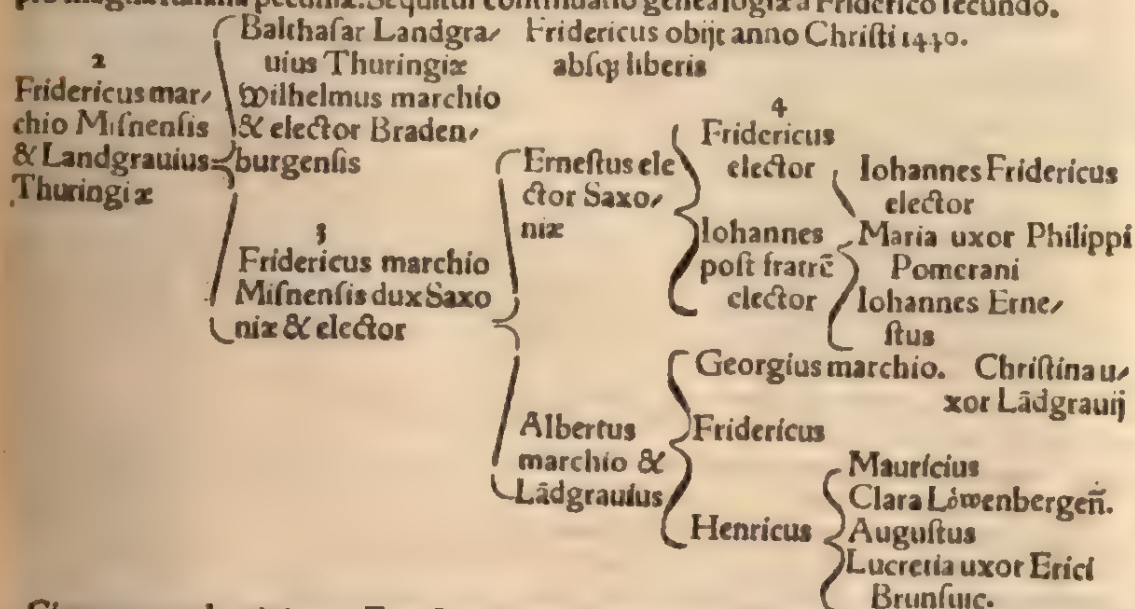 Sequitur continuatio genealogiæ a Friderico secundo.
2
Fridericus mar/
chio Misnensis
& Landgrauius
Thuringiæ
Balthasar Landgra/
uius Thuringiæ
Wilhelmus marchio
& elector Braden/
burgensis
Fridericus obijt anno Christi 1440.
absq; liberis
3
Fridericus marchio
Misnensis dux Saxo
niæ & elector
Ernestus ele
ctor Saxo/
niæ
4
Fridericus
elector
Iohannes
post fratrē
elector
Iohannes Fridericus
elector
Maria uxor Philippi
Pomerani
Iohannes Erne/
stus
Albertus
marchio &
Lādgrauius
Georgius marchio. Christina u/
xor Lādgrauij
Fridericus
Henricus
Mauricius
Clara Löwenbergen̄.
Augustus
Lucretia uxor Erici
Brunsuic.